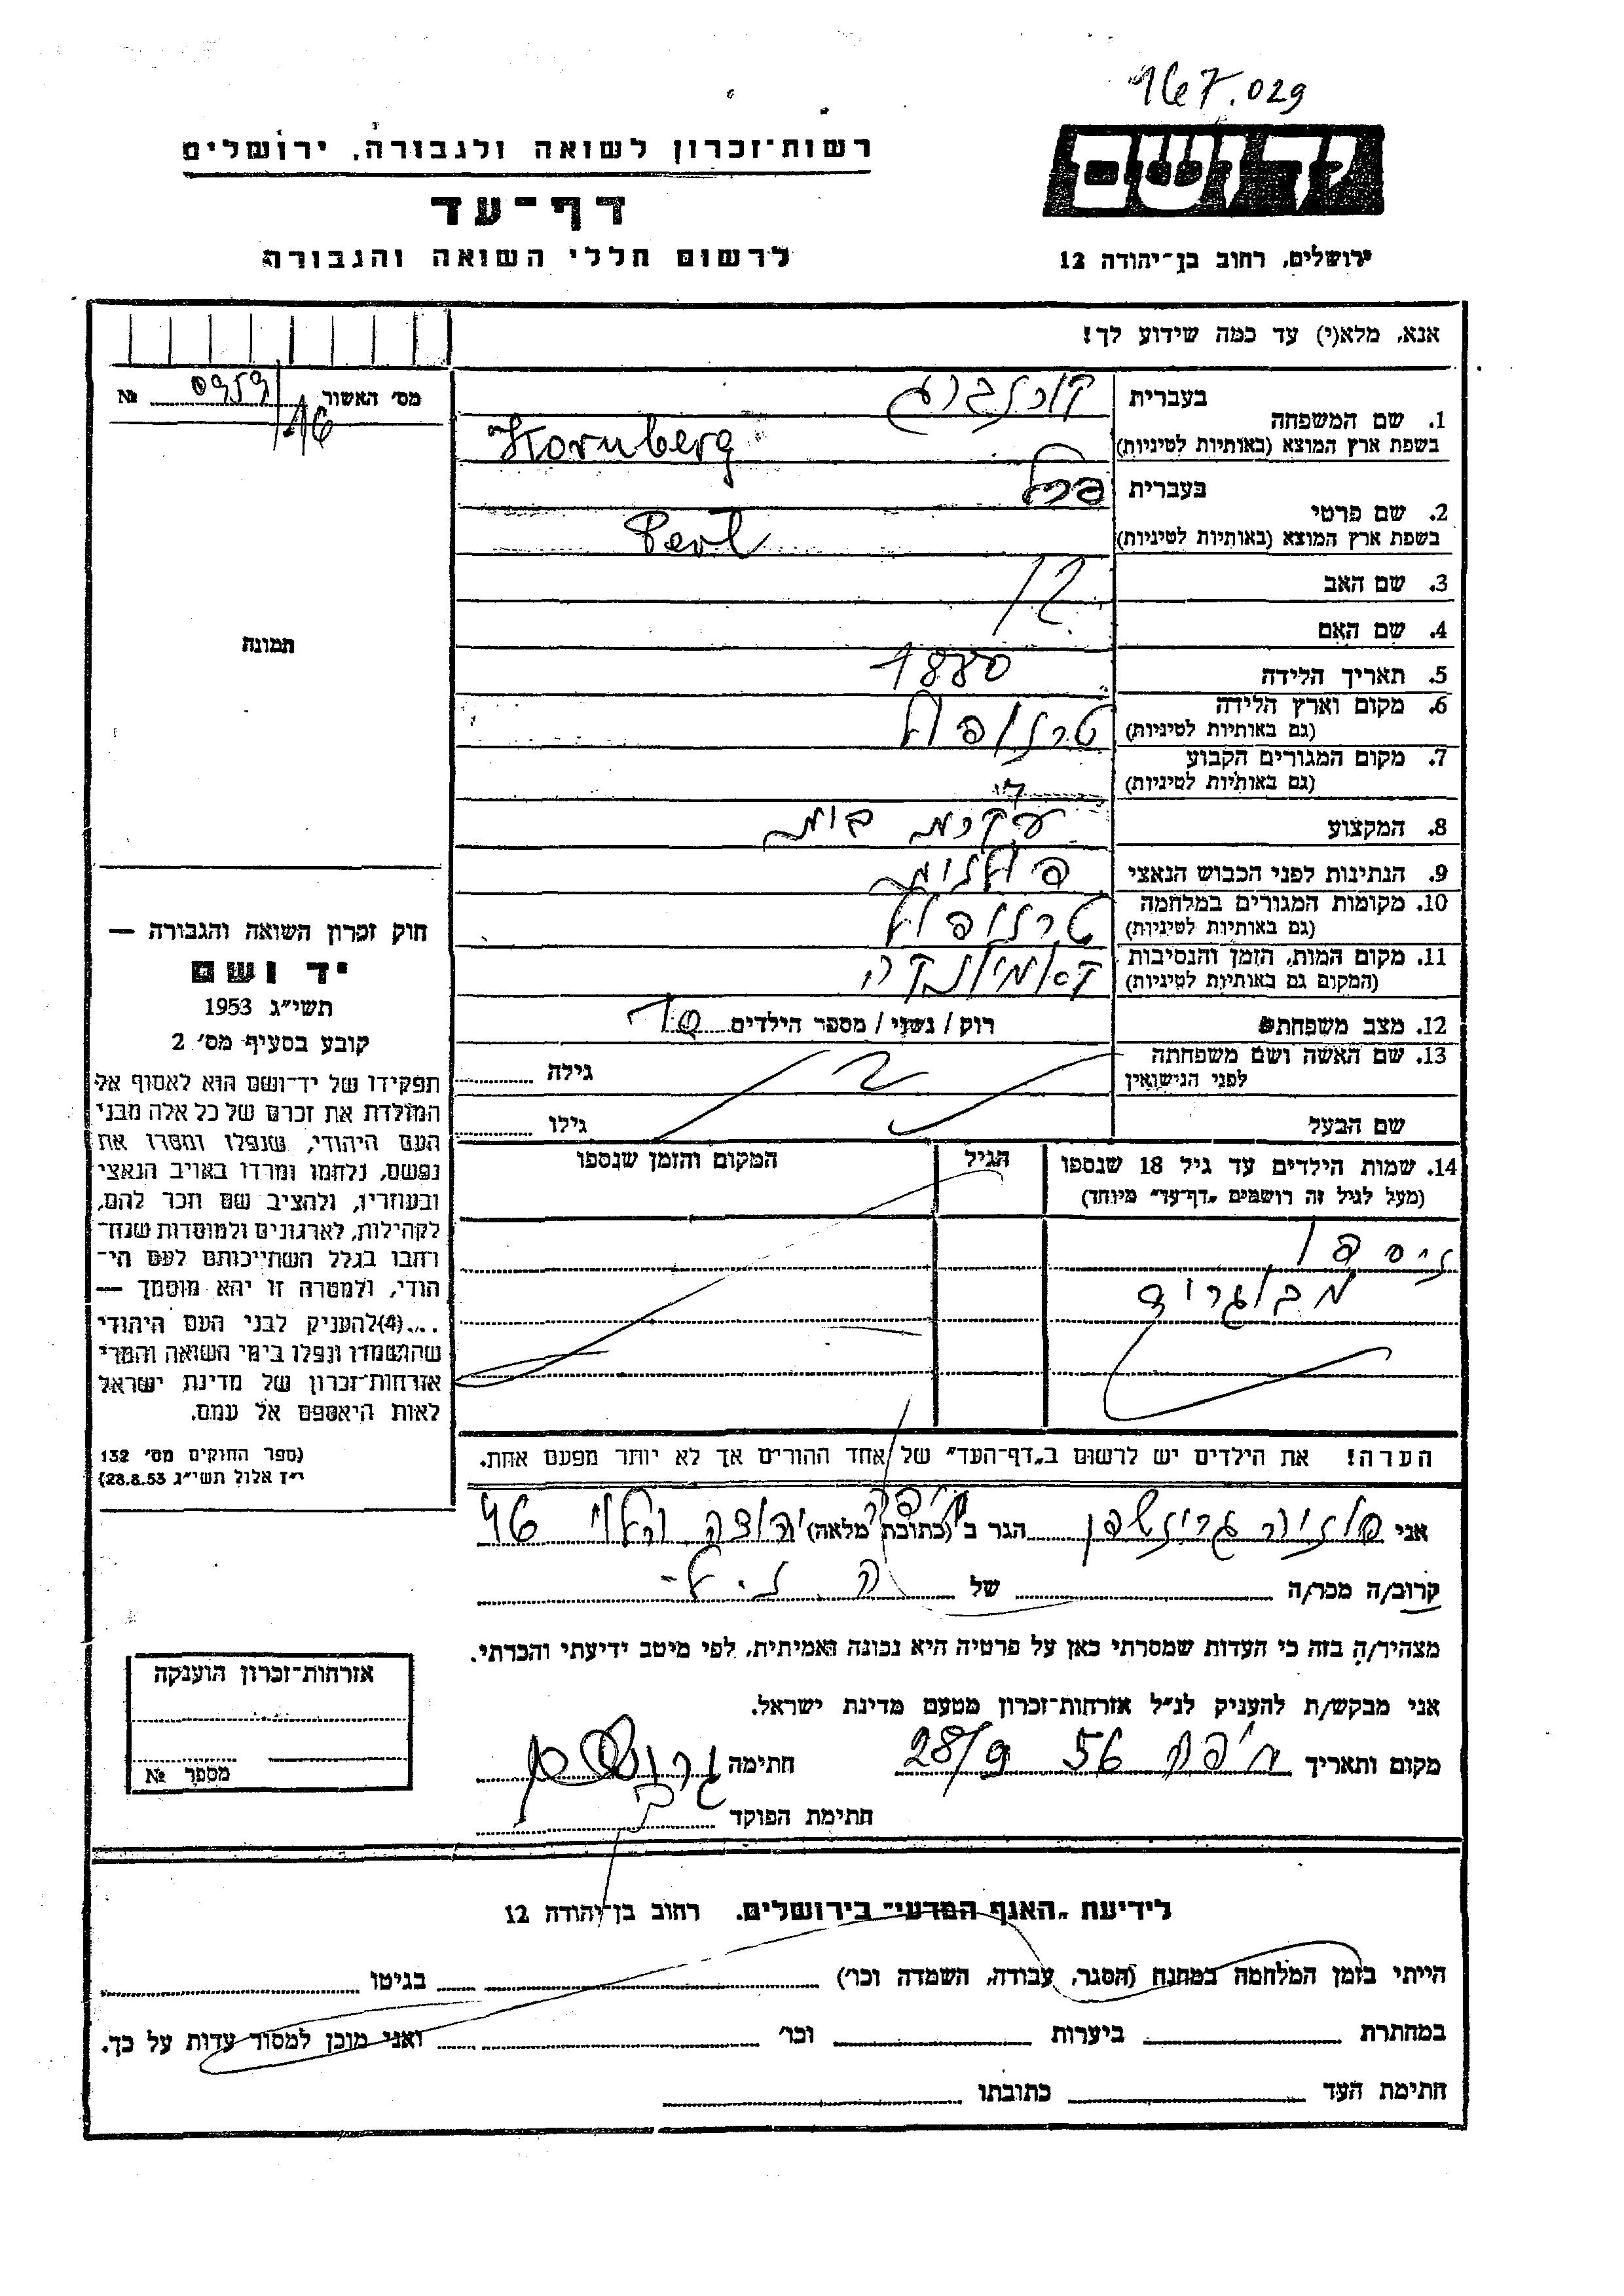 167.029
רשות־זכרון לשואה ולגבורה, ירושלים
דף־עד
לרשום חללי השואה והגבורה
יד ושם
ירושלים, רחוב בן־יהודה 12
אנא, מלא(י) עד כמה שידוע לך!
מס׳ האשור 0959 №
16
1. שם המשפחה
בעברית קורנברג
בשפת ארץ המוצא (באותיות לטיניות) Kornberg
2. שם פרטי
בעברית פרל
בשפת ארץ המוצא (באותיות לטיניות) Perl
3. שם האב
4. שם האם
5. תאריך הלידה 1880
6. מקום וארץ הלידה טרנופול
(גם באותיות לטיניות)
7. מקום המגורים הקבוע
(גם באותיות לטיניות)
8. המקצוע עקרת בית
9. הנתינות לפני הכבוש הנאצי פולנית
10. מקומות המגורים במלחמה טרנופול
(גם באותיות לטיניות)
11. מקום המות, הזמן והנסיבות קאמיונקה
(המקום גם באותיות לטיניות)
12. מצב משפחתי רוק / נשוי / מספר הילדים
13. שם האשה ושם משפחתה
לפני הנישואין
גילה
שם הבעל
גילו
14. שמות הילדים עד גיל 18 שנספו
(מעל לגיל זה רושמים „דף־עד״ מיוחד)
הגיל
המקום והזמן שנספו
ניספו
מבוגרים
הערה! את הילדים יש לרשום ב„דף־העד״ של אחד ההורים אך לא יותר מפעם אחת.
תמונה
חוק זכרון השואה והגבורה —
יד ושם
תשי״ג 1953
קובע בסעיף מס׳ 2
תפקידו של יד־ושם הוא לאסוף אל
המולדת את זכרם של כל אלה מבני
העם היהודי, שנפלו ומסרו את
נפשם, נלחמו ומרדו באויב הנאצי
ובעוזריו, ולהציב שם וזכר להם,
לקהילות, לארגונים ולמוסדות שנח־
רחבו בגלל השתייכותם לעם הי־
הודי, ולמטרה זו יהא מוסמך —
...(4)להעניק לבני העם היהודי
שהושמדו ונפלו בימי השואה והמרי
אזרחות־זכרון של מדינת ישראל
לאות היאספם אל עמם.
(ספר החוקים מס׳ 132
י״ז אלול תשי״ג 28.8.53)
אני גרינשפן הגר ב (כתובת מלאה) חיפה יהודה הלוי 46
קרוב/ה מכר/ה של הנ.ל-
מצהיר/ה בזה כי העדות שמסרתי כאן על פרטיה היא נכונה ואמיתית, לפי מיטב ידיעתי והכרתי.
אני מבקש/ת להעניק לנ״ל אזרחות־זכרון מטעם מדינת ישראל.
מקום ותאריך חיפה 28/9 56 חתימה
חתימת הפוקד
אזרחות־זכרון הוענקה
מספר №
לידיעת „האגף המדעי״ בירושלים. רחוב בן־יהודה 12
הייתי בזמן המלחמה במחנה (הסגר, עבודה, השמדה וכו׳) בגיטו
במחתרת ביערות וכו׳ ואני מוכן למסור עדות על כך.
חתימת העד כתובתו